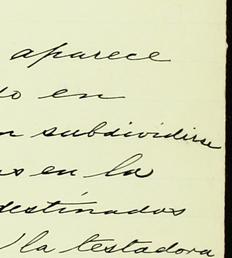 aparece
do en
n subdividirse
as en la
destinados
la testadora